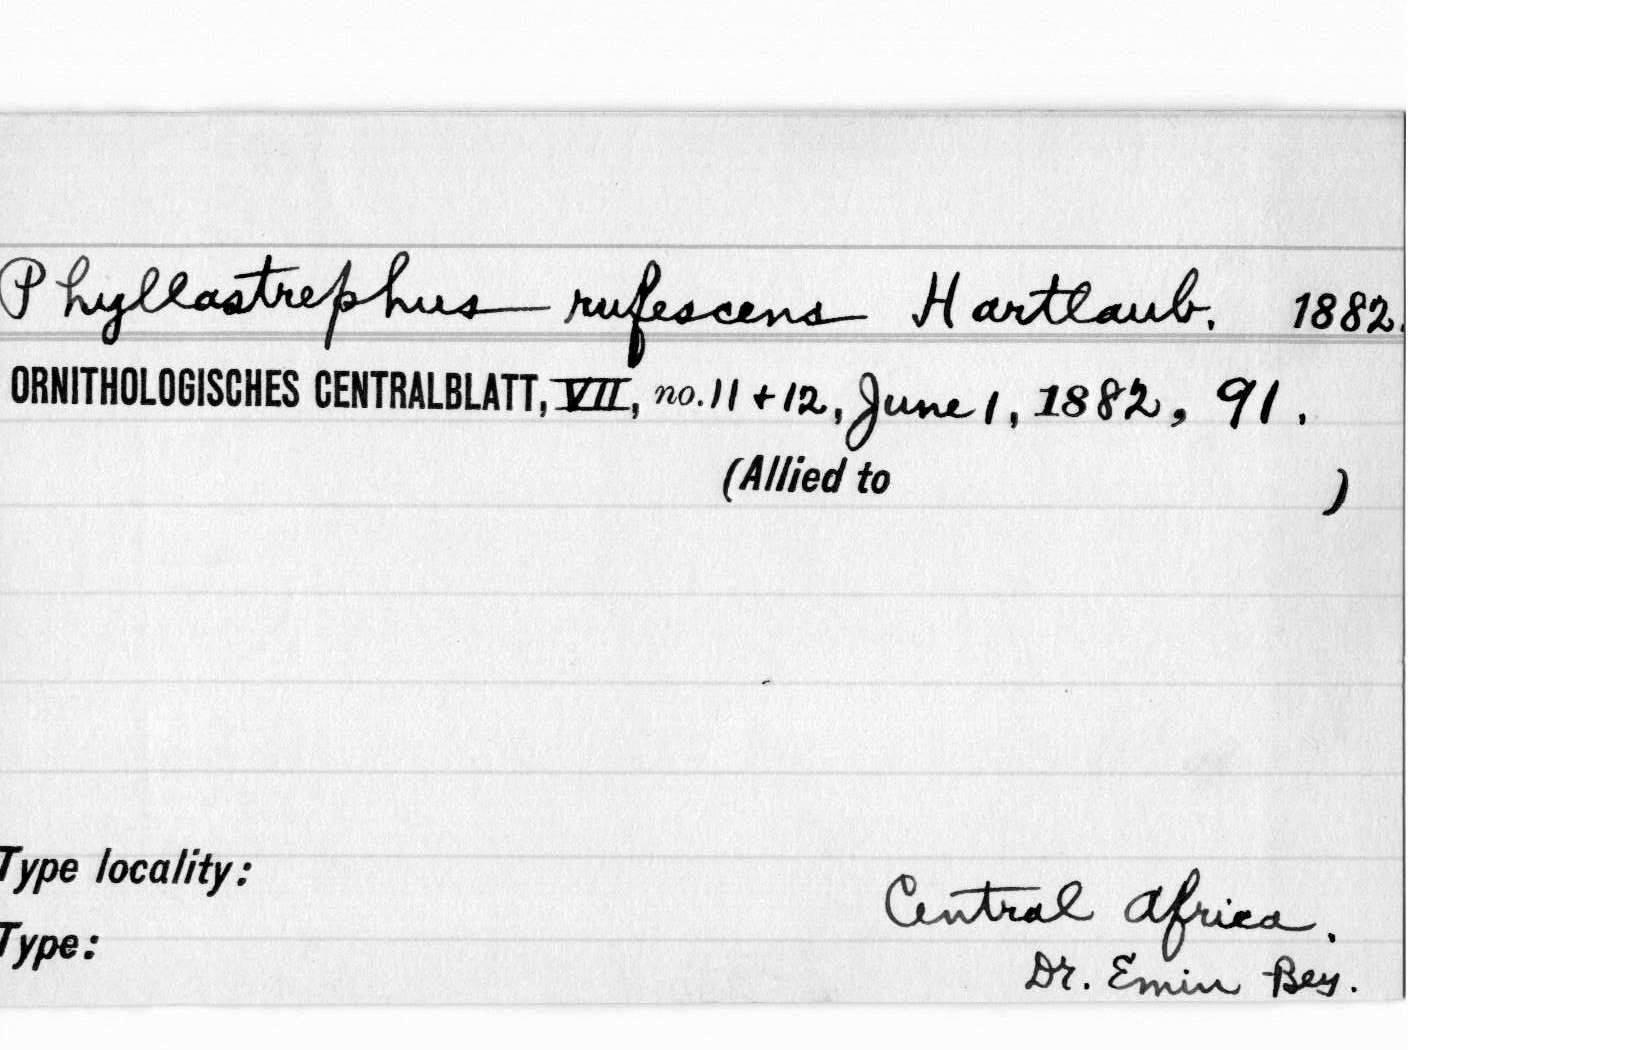 Phyllastrephus rufescens Hartlaub. 1882.
ORNITHOLOGISCHES CENTRALBLATT, VII, no. 11 + 12, June 1, 1882, 91.
(Allied to )
Type locality:
Central Africa.
Type:
Dr. Emin Bey.